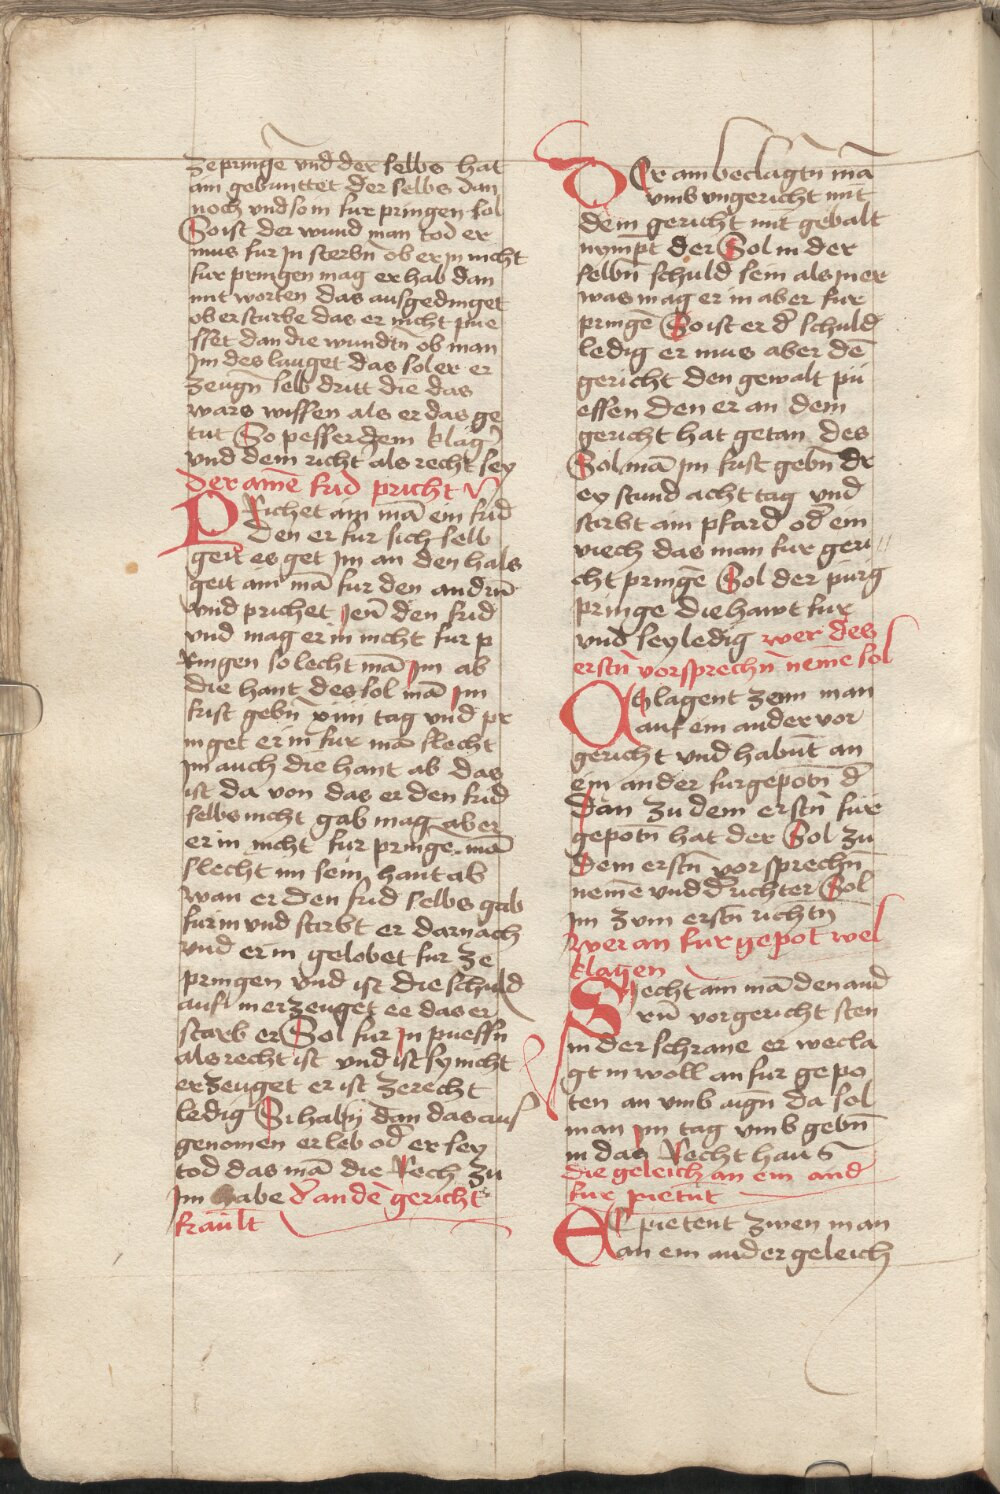 ze pringē vnd der selbs hat
ain gebunttet der selbs dan
noch vnd so in fur pringen sol
So ist der wund man tod er
mus fur jn sterbn̄ ob er jn nicht
fur pringen mag er hab dan
mit worten das ausgedinget
ob er sturbe das er nicht pue
sset dan die wundtn̄ ob man
Jm des lauget das sol er er
zeugn̄ selb dritt die das
wars wissen als er das ge
tut So pesser dem klaḡ
vnd dem richt̄ als recht sey
der ainē frid pricht
PRichet ain mā ein frid
den er fur sich selb
geit es get jm an den hals
geit ain mā fur den andrn̄
vnd prichet jenn̄ den frid
vnd mag er in nicht fur p
Ringen so slecht mā jm ab
die hant des sol mā jm
frist gebn̄ xiiij tag vnd pr
inget er in fur mā slecht
jm auch die hant ab das
ist da von das er den frid
selbs nicht gab mag aber
er in nicht fur pringē mā
slecht im sein hant ab
wan er den frid selbs gab
fur in vnd starbt er darnach
vnd er in gelobet fur ze
pringen vnd ist die schuld
auf in erzeuget ee das er
starb er Sol fur jn puessn̄
als recht ist vnd ist sy nicht
erzeuget er ist zerecht
ledig Si habn̄ dan das aus
genomen er leb od̄ er sey
tod das mā die Rech zu
jm habe d̄ an dē gericht
frauͤlt
DEr ain beclagtn̄ mā
vmb vngericht mit
dem gericht mit gebalt
nympt der Sol in der
selbn̄ schuld sein als jner
was mag er in aber fur
pringē So ist er d̄ schuld
ledig er mus aber dē
gericht den gewalt pu
essen den er an dem
gericht hat getan des
Sol mā jm frist gebn̄ dr
ey stund acht tag vnd
starbt ain pfard od̄ ein
viech das man fur geri
cht pringē Sol der purg
pringe die hawt fur
vnd sey ledig wer des
erstn̄ vorsprechn̄ nemē sol
Chlagent zenn man
auf ein ander vor
gericht vnd habn̄t an
ein ander furgepotn̄ d̄
dan zu dem erstn̄ fur
gepotn̄ hat der Sol zu
dem erstn̄ vorsprechn̄
nemē vnd d̄ richter Sol
jm zum erstn̄ richtn̄
wer an fur gepot wel
klagen
Siecht ain mā den and̄
rn̄ vor gericht sten
in der schrane er wecla
gt in woll an fur gepo
ten an vmb aign̄ da sol
man jm tag vmb gebn̄
in das Recht haus
die geleich an ein and̄
fur pietn̄t
Es pietent zwen man
an ein ander geleich